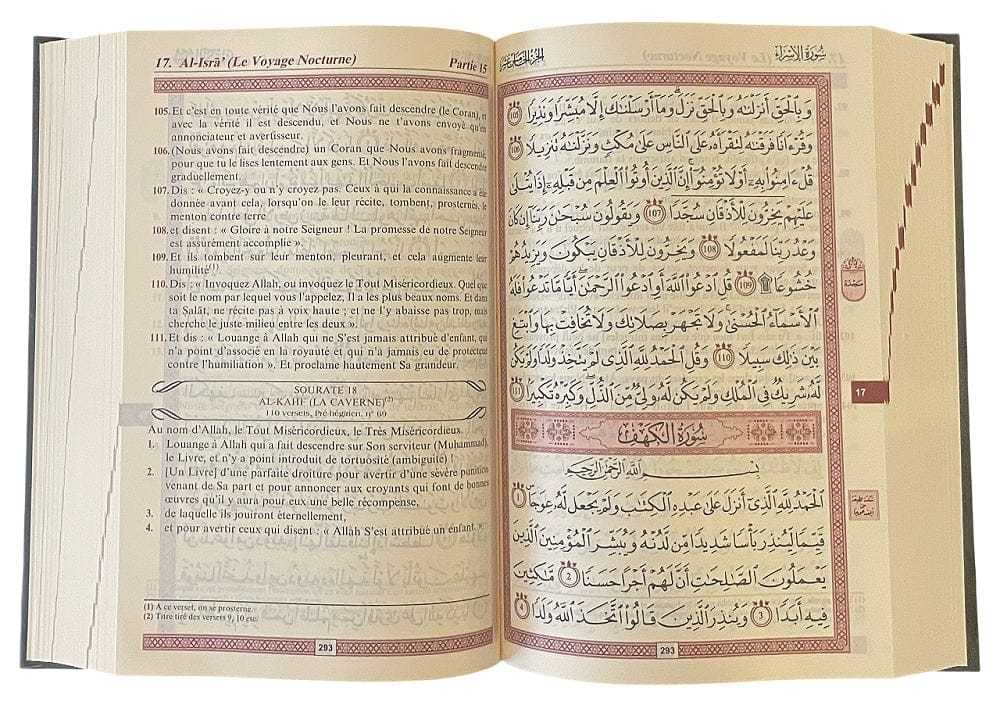 17. Al-Isrā' (Le Voyage Nocturne)
Partie 15
105. Et c'est en toute vérité que Nous l'avons fait descendre (le Coran), et
avec la vérité il est descendu, et Nous ne t'avons envoyé qu'en
annonciateur et avertisseur.
106. (Nous avons fait descendre) un Coran que Nous avons fragmenté,
pour que tu le lises lentement aux gens. Et Nous l'avons fait descendre
graduellement.
107. Dis : « Croyez-y ou n'y croyez pas. Ceux à qui la connaissance a été
donnée avant cela, lorsqu'on le leur récite, tombent, prosternés, le
menton contre terre
108. et disent : « Gloire à notre Seigneur ! La promesse de notre Seigneur
est assurément accomplie ».
109. Et ils tombent sur leur menton, pleurant, et cela augmente leur
humilité(1).
110. Dis : « Invoquez Allah, ou invoquez le Tout Miséricordieux. Quel que
soit le nom par lequel vous l'appelez, Il a les plus beaux noms. Et dans
ta Salât, ne récite pas à voix haute ; et ne l'y abaisse pas trop, mais
cherche le juste milieu entre les deux ».
111. Et dis : « Louange à Allah qui ne S'est jamais attribué d'enfant, qui
n'a point d'associé en la royauté et qui n'a jamais eu de protecteur
contre l'humiliation ». Et proclame hautement Sa grandeur.
SOURATE 18
AL-KAHF (LA CAVERNE)(2)
110 versets, Pré-hégirien, n° 69
Au nom d'Allah, le Tout Miséricordieux, le Très Miséricordieux.
1. Louange à Allah qui a fait descendre sur Son serviteur (Muhammad),
le Livre, et n'y a point introduit de tortuosité (ambiguïté) !
2. [Un Livre] d'une parfaite droiture pour avertir d'une sévère punition
venant de Sa part et pour annoncer aux croyants qui font de bonnes
œuvres qu'il y aura pour eux une belle récompense,
3. de laquelle ils jouiront éternellement,
4. et pour avertir ceux qui disent : « Allah S'est attribué un enfant. »
(1) A ce verset, on se prosterne.
(2) Titre tiré des versets 9, 10 etc.
293
سُورَةُ الإِسْرَاءِ
وَبِالْحَقِّ أَنزَلْنَٰهُ وَبِالْحَقِّ نَزَلَ وَمَآ أَرْسَلْنَٰكَ إِلَّا مُبَشِّرًا وَنَذِيرًا 105
وَقُرْءَانًا فَرَقْنَٰهُ لِتَقْرَأَهُۥ عَلَى النَّاسِ عَلَىٰ مُكْثٍ وَنَزَّلْنَٰهُ تَنزِيلًا 106
قُلْ ءَامِنُوا۟ بِهِۦٓ أَوْ لَا تُؤْمِنُوٓا۟ إِنَّ الَّذِينَ أُوتُوا۟ الْعِلْمَ مِن قَبْلِهِۦٓ إِذَا يُتْلَىٰ
عَلَيْهِمْ يَخِرُّونَ لِلْأَذْقَانِ سُجَّدًا 107 وَيَقُولُونَ سُبْحَٰنَ رَبِّنَآ إِن كَانَ
وَعْدُ رَبِّنَا لَمَفْعُولًا 108 وَيَخِرُّونَ لِلْأَذْقَانِ يَبْكُونَ وَيَزِيدُهُمْ
خُشُوعًا ۩ 109 قُلِ ادْعُوا۟ اللَّهَ أَوِ ادْعُوا۟ الرَّحْمَٰنَ أَيًّا مَّا تَدْعُوا۟ فَلَهُ
الْأَسْمَآءُ الْحُسْنَىٰ وَلَا تَجْهَرْ بِصَلَاتِكَ وَلَا تُخَافِتْ بِهَا وَابْتَغِ
بَيْنَ ذَٰلِكَ سَبِيلًا 110 وَقُلِ الْحَمْدُ لِلَّهِ الَّذِى لَمْ يَتَّخِذْ وَلَدًا وَلَمْ يَكُن
لَّهُۥ شَرِيكٌ فِى الْمُلْكِ وَلَمْ يَكُن لَّهُۥ وَلِىٌّ مِّنَ الذُّلِّ وَكَبِّرْهُ تَكْبِيرًا 111
سُورَةُ الكَهْفِ
بِسْمِ اللَّهِ الرَّحْمَٰنِ الرَّحِيمِ
الْحَمْدُ لِلَّهِ الَّذِىٓ أَنزَلَ عَلَىٰ عَبْدِهِ الْكِتَٰبَ وَلَمْ يَجْعَل لَّهُۥ عِوَجَا 1
قَيِّمًا لِّيُنذِرَ بَأْسًا شَدِيدًا مِّن لَّدُنْهُ وَيُبَشِّرَ الْمُؤْمِنِينَ الَّذِينَ
يَعْمَلُونَ الصَّٰلِحَٰتِ أَنَّ لَهُمْ أَجْرًا حَسَنًا 2 مَّٰكِثِينَ
فِيهِ أَبَدًا 3 وَيُنذِرَ الَّذِينَ قَالُوا۟ اتَّخَذَ اللَّهُ وَلَدًا 4
17
293